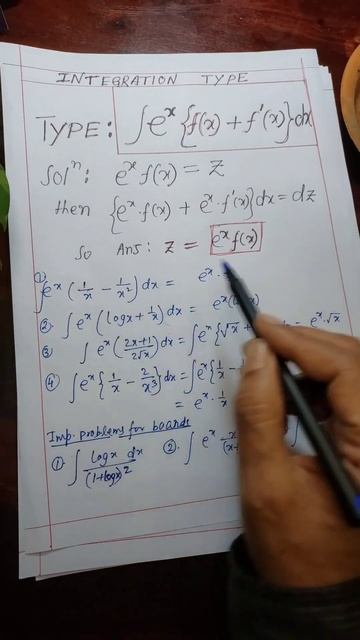 INTEGRATION TYPE
TYPE: ∫e^x {f(x) + f'(x)} dx
Sol^n: e^x f(x) = z
then {e^x·f(x) + e^x·f'(x)} dx = dz
So Ans: z = e^x f(x)
① ∫e^x (1/x − 1/x²) dx = e^x ·
2. ∫e^x (logx + 1/x) dx = e^x
③ ∫e^x (2x+1/2√x) dx = ∫e^x {√x + = e^x·√x
④ ∫e^x {1/x − 2/x³} dx = ∫e^x {1/x −
= e^x · 1/x
Imp. problems for boards
①. ∫ logx dx/(1+logx)² ②. ∫ e^x